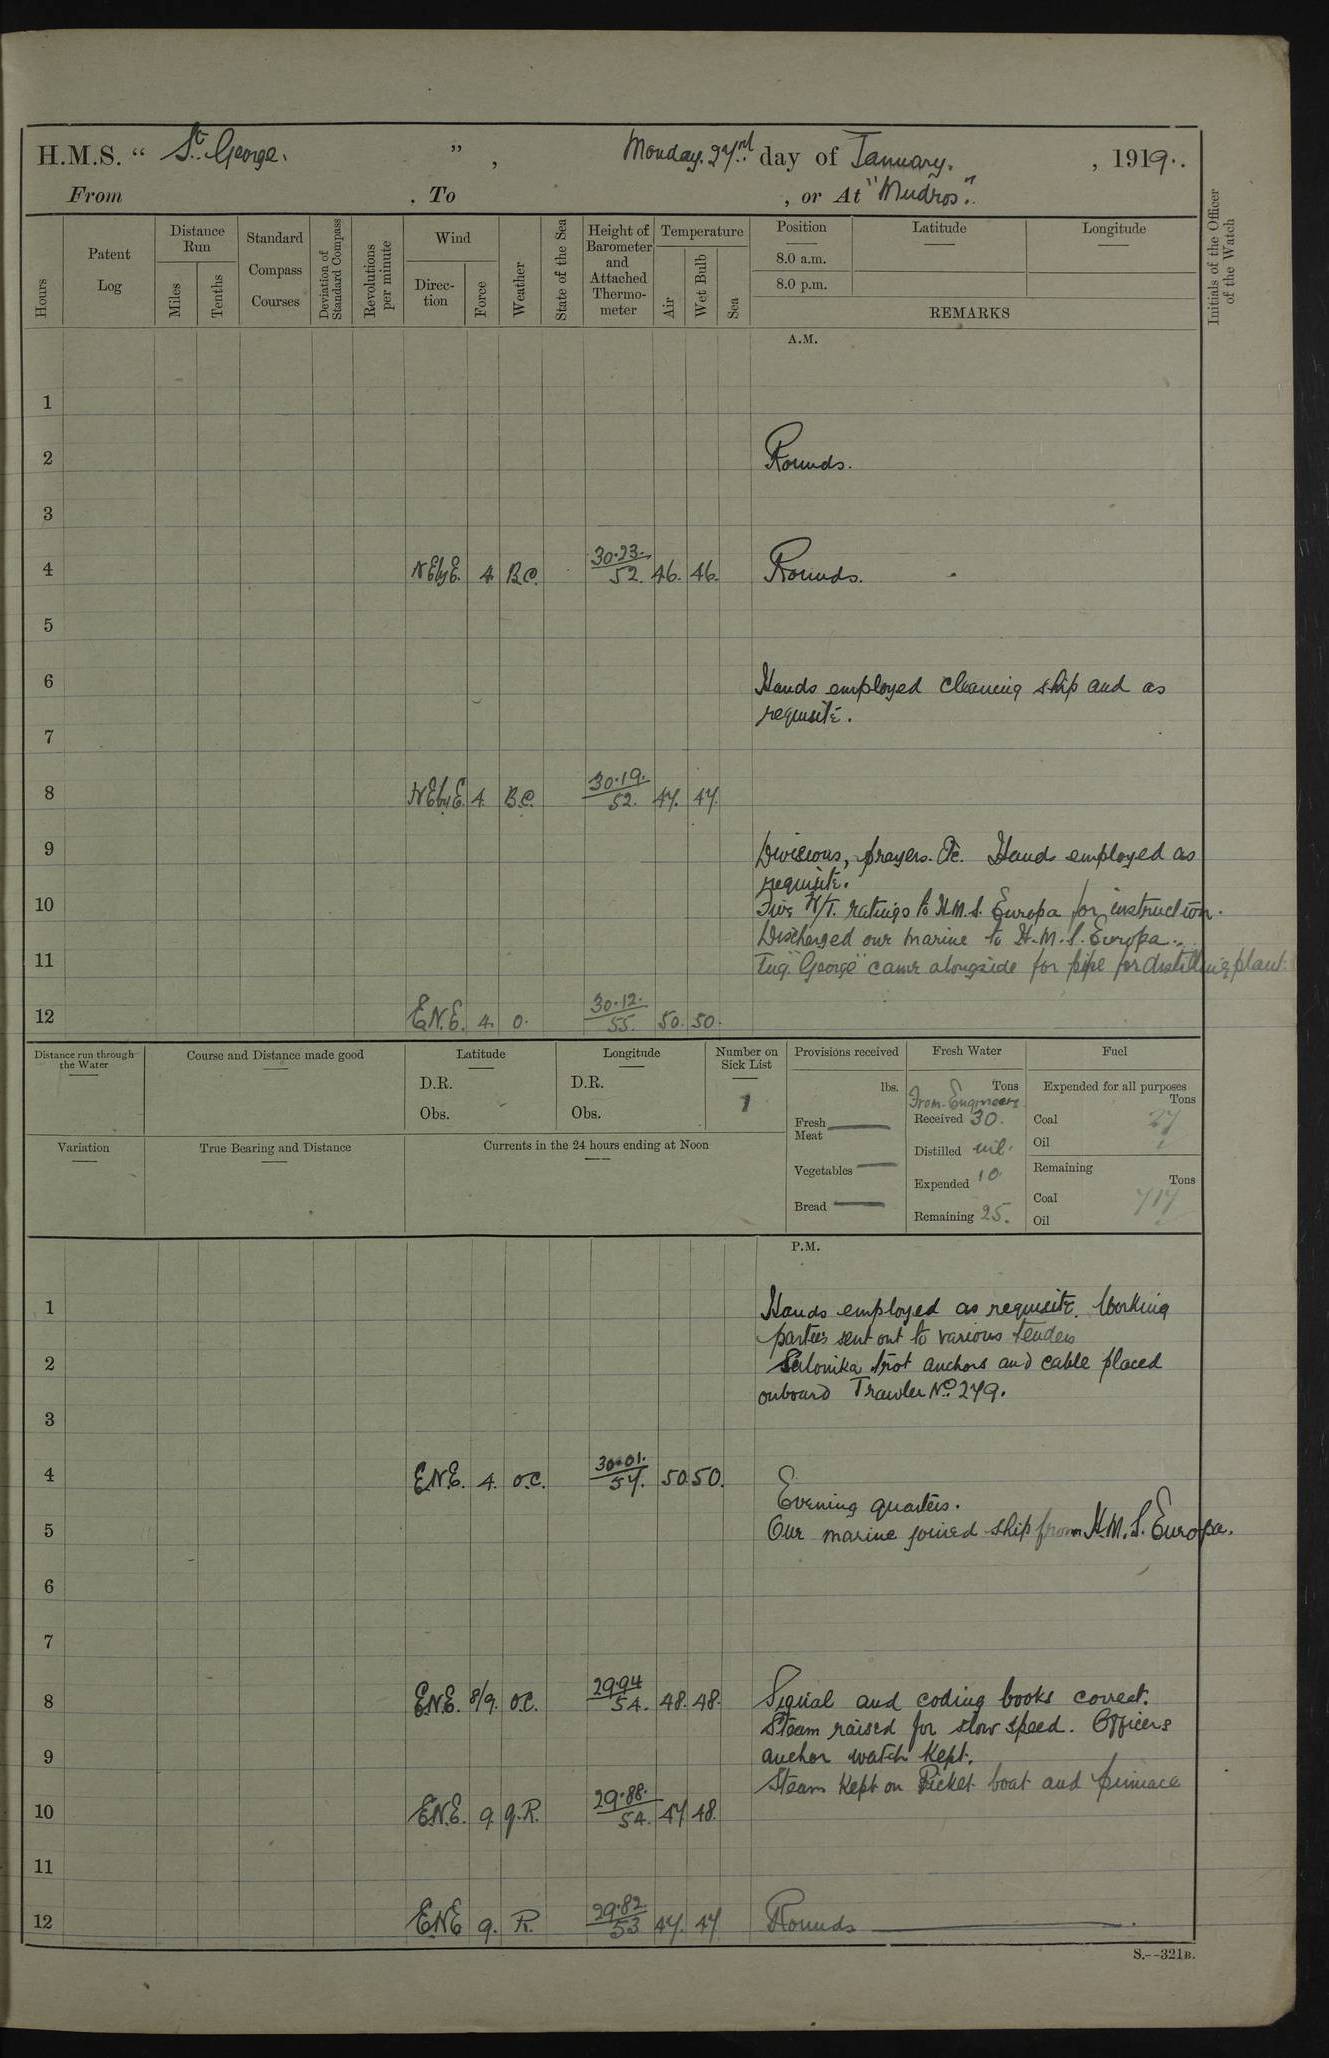 H.M.S. " St. George. ", Monday. 27rd day of January. , 1919.
From , To , or At "Mudros".
Hours
Patent Log
Distance Run
Miles
Tenths
Standard Compass Courses
Deviation of Standard Compass
Revolutions per minute
Wind
Direc-tion
Force
Weather
State of the Sea
Height of Barometer and Attached Thermo-meter
Temperature
Air
Wet Bulb
Sea
Position
8.0 a.m.
8.0 p.m.
Latitude
Longitude
REMARKS
Initials of the Officer of the Watch
A.M.
1
2 Rounds.
3
4 NEbyE. 4 B.C. 30.23. 52. 46. 46. Rounds.
5
6 Hands employed cleaning ship and as
requisite.
7
8 NEbyE. 4. B.C. 30.19. 52. 47. 47.
9 Divisions, prayers. &c. Hands employed as
requisite.
10 Five W/T. ratings to H.M.S. Europa for instruction.
Discharged one marine to H.M.S. Europa.
11 Tug. "George" came alongside for pipe for distilling plant.
12 E.N.E. 4. O. 30.12. 55. 50. 50.
Distance run through the Water
Course and Distance made good
Latitude
D.R.
Obs.
Longitude
D.R.
Obs.
Number on Sick List
1
Provisions received
lbs.
Fresh Meat
Vegetables
Bread
Fresh Water
Tons
From Engineers
Received 30.
Distilled nil.
Expended 10
Remaining 25.
Fuel
Expended for all purposes
Tons
Coal 27
Oil
Remaining
Tons
Coal 717
Oil
Variation
True Bearing and Distance
Currents in the 24 hours ending at Noon
P.M.
1 Hands employed as requisite. Working
parties sent out to various tenders
2 Salonika trot anchors and cable placed
onboard Trawler No. 279.
3
4 E.N.E. 4. O.C. 30.01. 57. 50. 50.
Evening quarters.
5 One marine joined ship from H.M.S. Europa.
6
7
8 E.N.E. 8/9. O.C. 29.94 54. 48. 48. Signal and coding books correct.
Steam raised for slow speed. Officers
9 anchor watch kept.
Steam kept on Picket boat and pinnace
10 E.N.E. 9. q.R. 29.88. 54. 47 48.
11
12 E.N.E 9. R. 29.82 53 47. 47 Rounds
S.--321B.